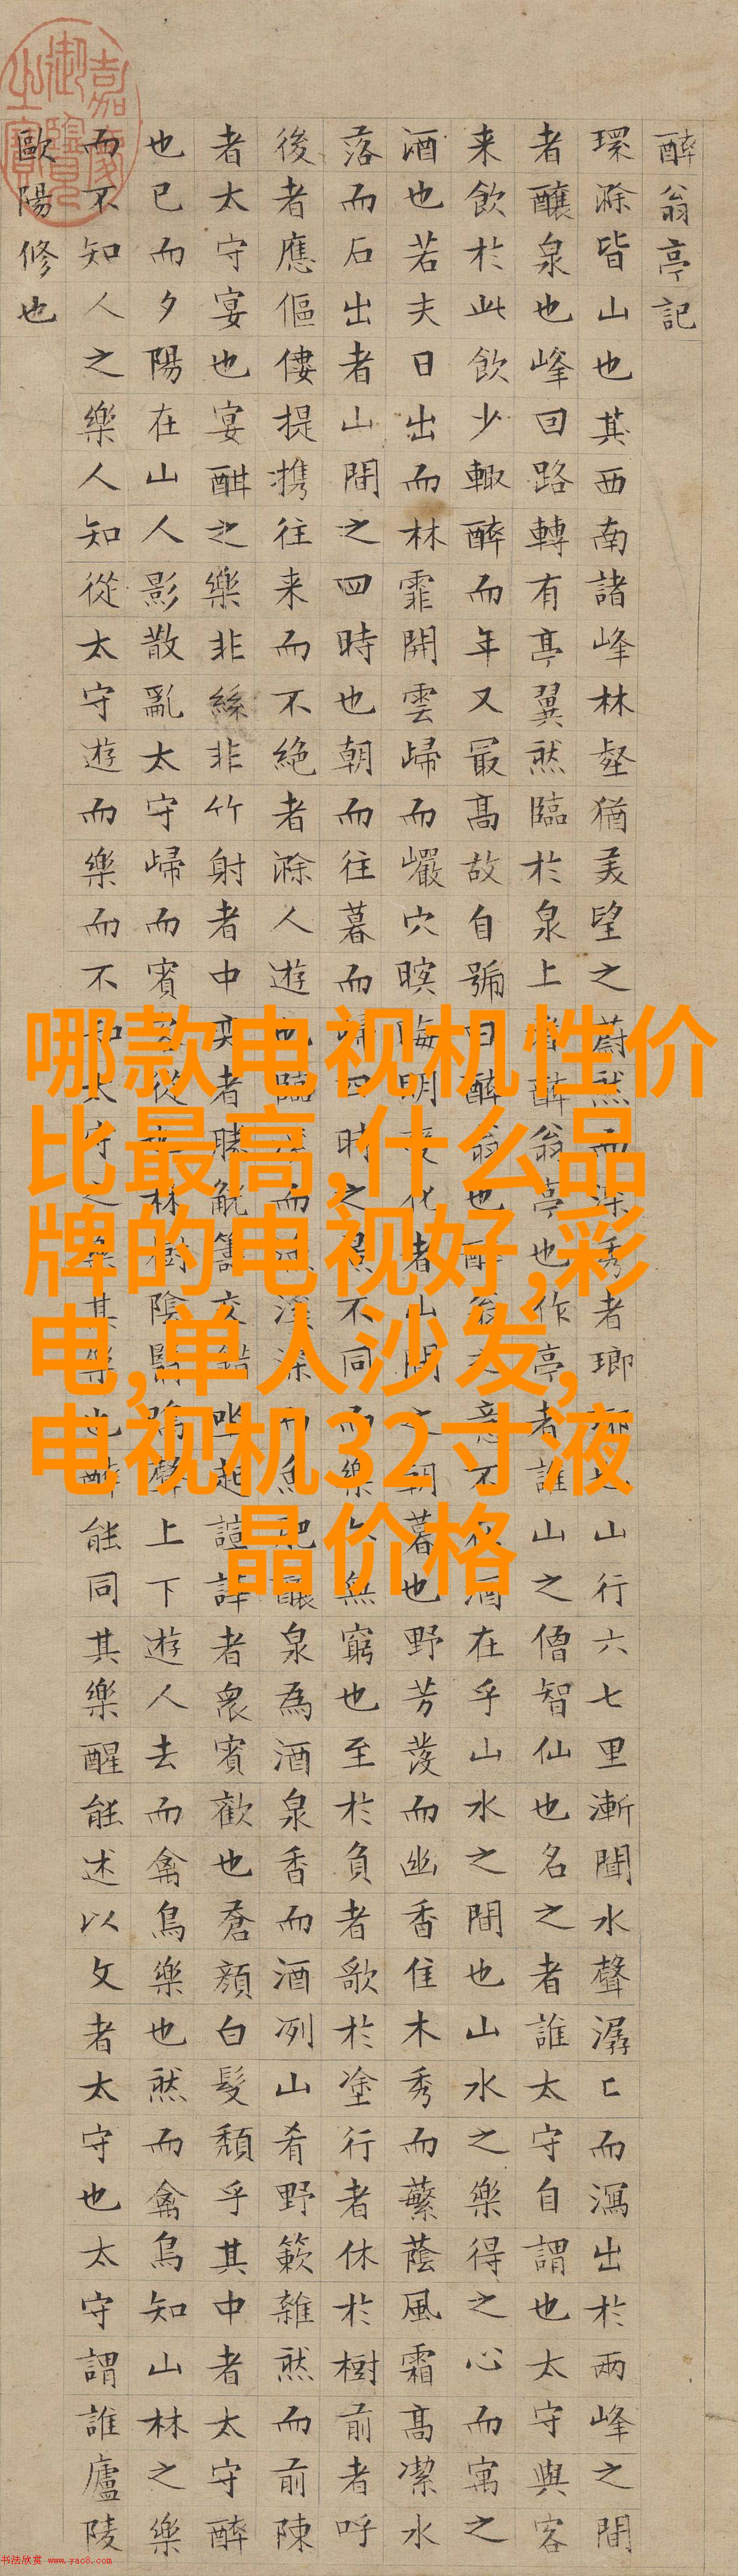 醉翁亭記
環滁皆山也其西南諸峰林壑猶美望之蔚然而深秀者瑯山行六七里漸聞水聲潺〻而瀉出於兩峰之間
者釀泉也峰回路轉有亭翼然臨於泉上者醉翁亭也作亭者誰山之僧智仙也名之者誰太守自謂也太守與客
来飲於此飲少輙醉而年又最高故自號曰醉翁也醉翁意不酒在乎山水之間也山水之樂得之心而寓之
酒也若夫日出而林霏開雲歸而巖穴暝晦明變化者山間之朝暮也野芳發而幽香佳木秀而繁蔭風霜高潔水
落而石出者山間之四時也朝而往暮而歸四時之景不同而樂無窮也至於負者歌於塗行者休於樹前者呼
後者應傴僂提攜往来而不絶者滁人遊也臨溪而溪深而魚肥釀泉為酒泉香而酒冽山肴野簌雜然而前陳
者太守宴也宴酣之樂非絲非竹射者中奕者勝觥籌交錯起諠譁者衆賓歡也蒼顔白髮頹乎其中者太守醉
也已而夕陽在山人影散亂太守歸而賓從林樹陰翳鳴聲上下遊人去而禽鳥樂也然而禽鳥知山林之樂
而不知人之樂人知從太守遊而樂而不知太守之樂其樂也醉能同其樂醒能述以文者太守也太守謂誰廬陵
歐陽修也
嘉慶御覽之寶
哪款电视机性价
比最高,什么品
牌的电视好,彩
电,单人沙发,
电视机32寸液
晶价格
书法欣赏 www.yac8.com